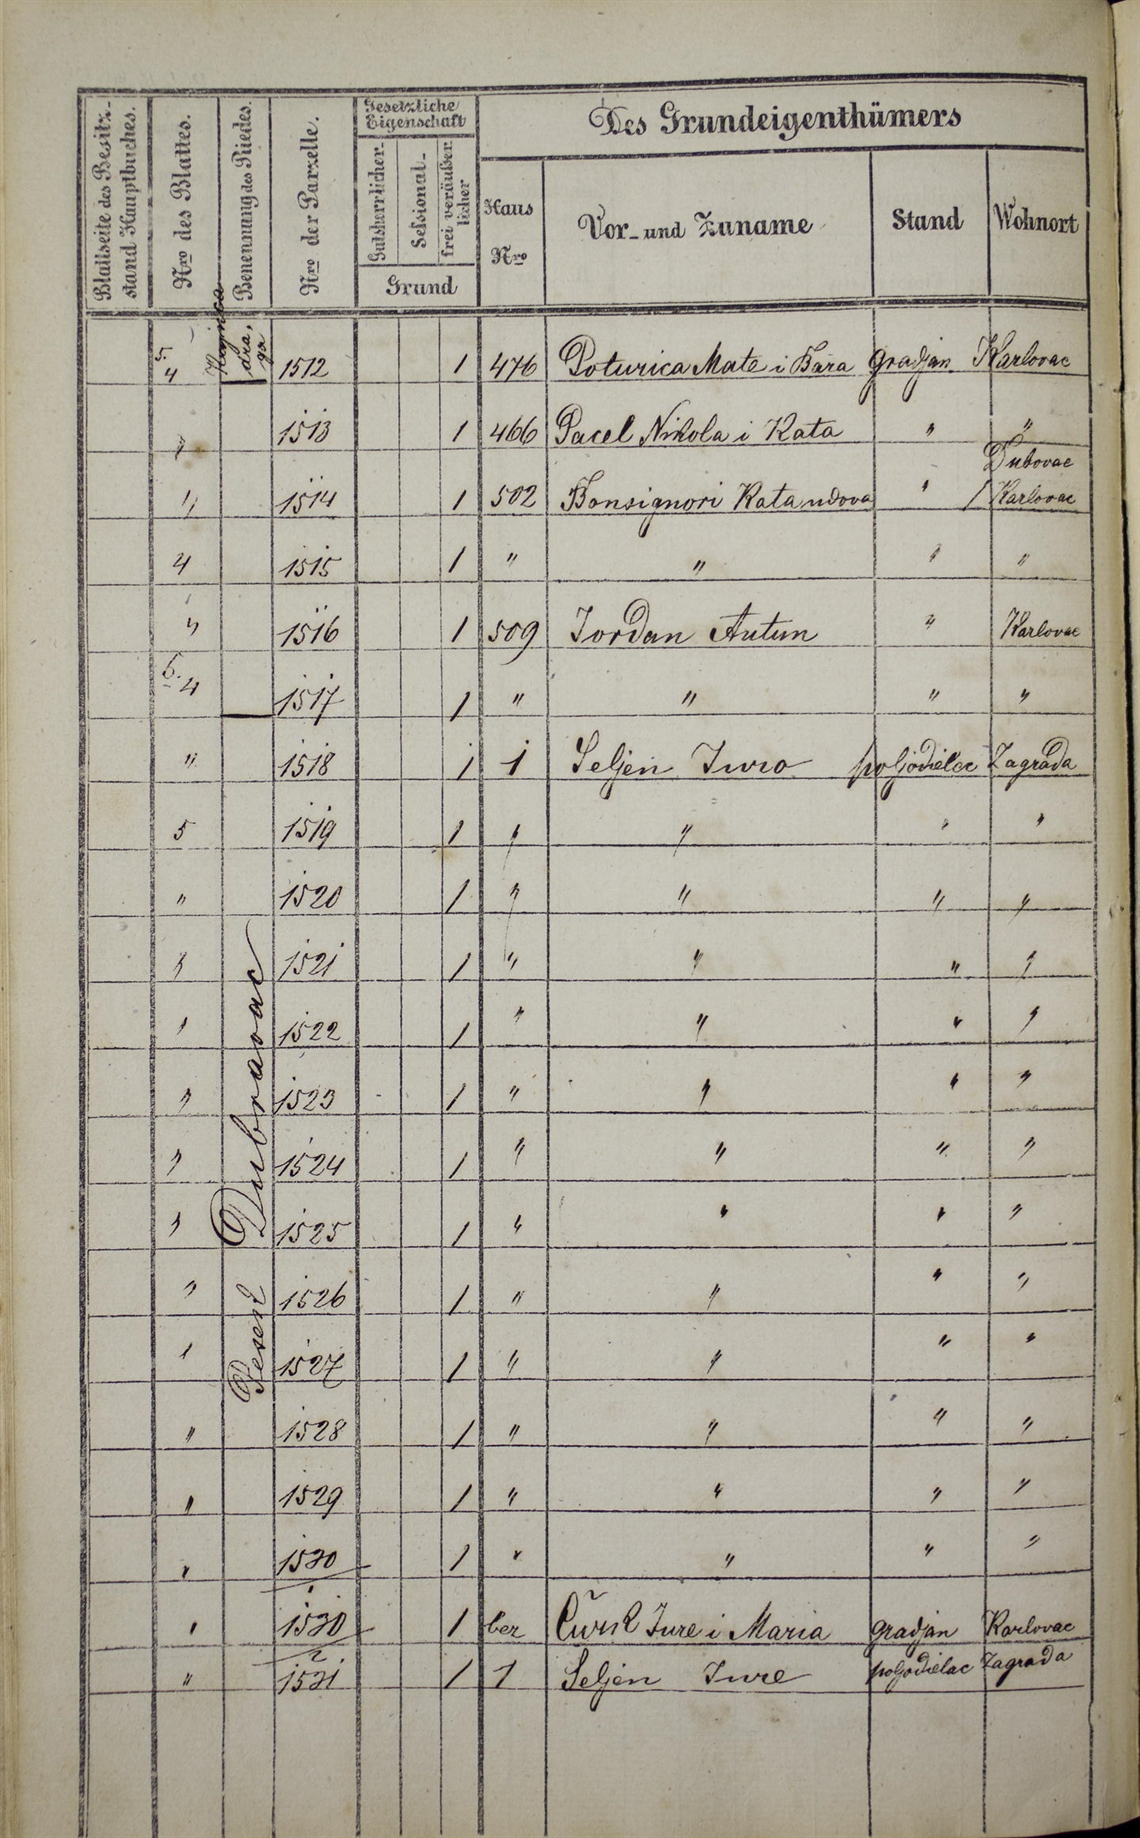 Des Grundeigenthümers
Gesetzliche Eigenschaft
Blattseite des Besitz-stand Hauptbuches.
Nro des Blattes.
Benennung des Riedes.
Nro der Parzelle.
Gutsherrlicher
Sessional-
frei veräußerlicher
Grund
Haus Nro
Vor- und Zuname
Stand
Wohnort
draga
5/4 1512 1 476 Poturica Mate i Bara gradjan Karlovac
" 1513 1 466 Pacel Nikola i Kata " "
Dubovac
" 1514 1 502 Bonsignori Kata udova " / Karlovac
4 1515 1 " " " "
" 1516 1 509 Jordan Antun " Karlovac
6. 4 1517 1 " " " "
" 1518 1 1 Seljen Juro poljodielac Zagrada
5 1519 1 " " " "
" 1520 1 " " " "
" 1521 1 " " " "
" 1522 1 " " " "
" 1523 1 " " " "
" 1524 1 " " " "
" 1525 1 " " " "
" 1526 1 " " " "
" 1527 1 " " " "
" 1528 1 " " " "
" 1529 1 " " " "
" 1530/1 1 " " " "
" 1530/2 1 bez Jure i Maria gradjan Karlovac
" 1531 1 1 Seljen Jure poljodielac Zagrada
Dubravac